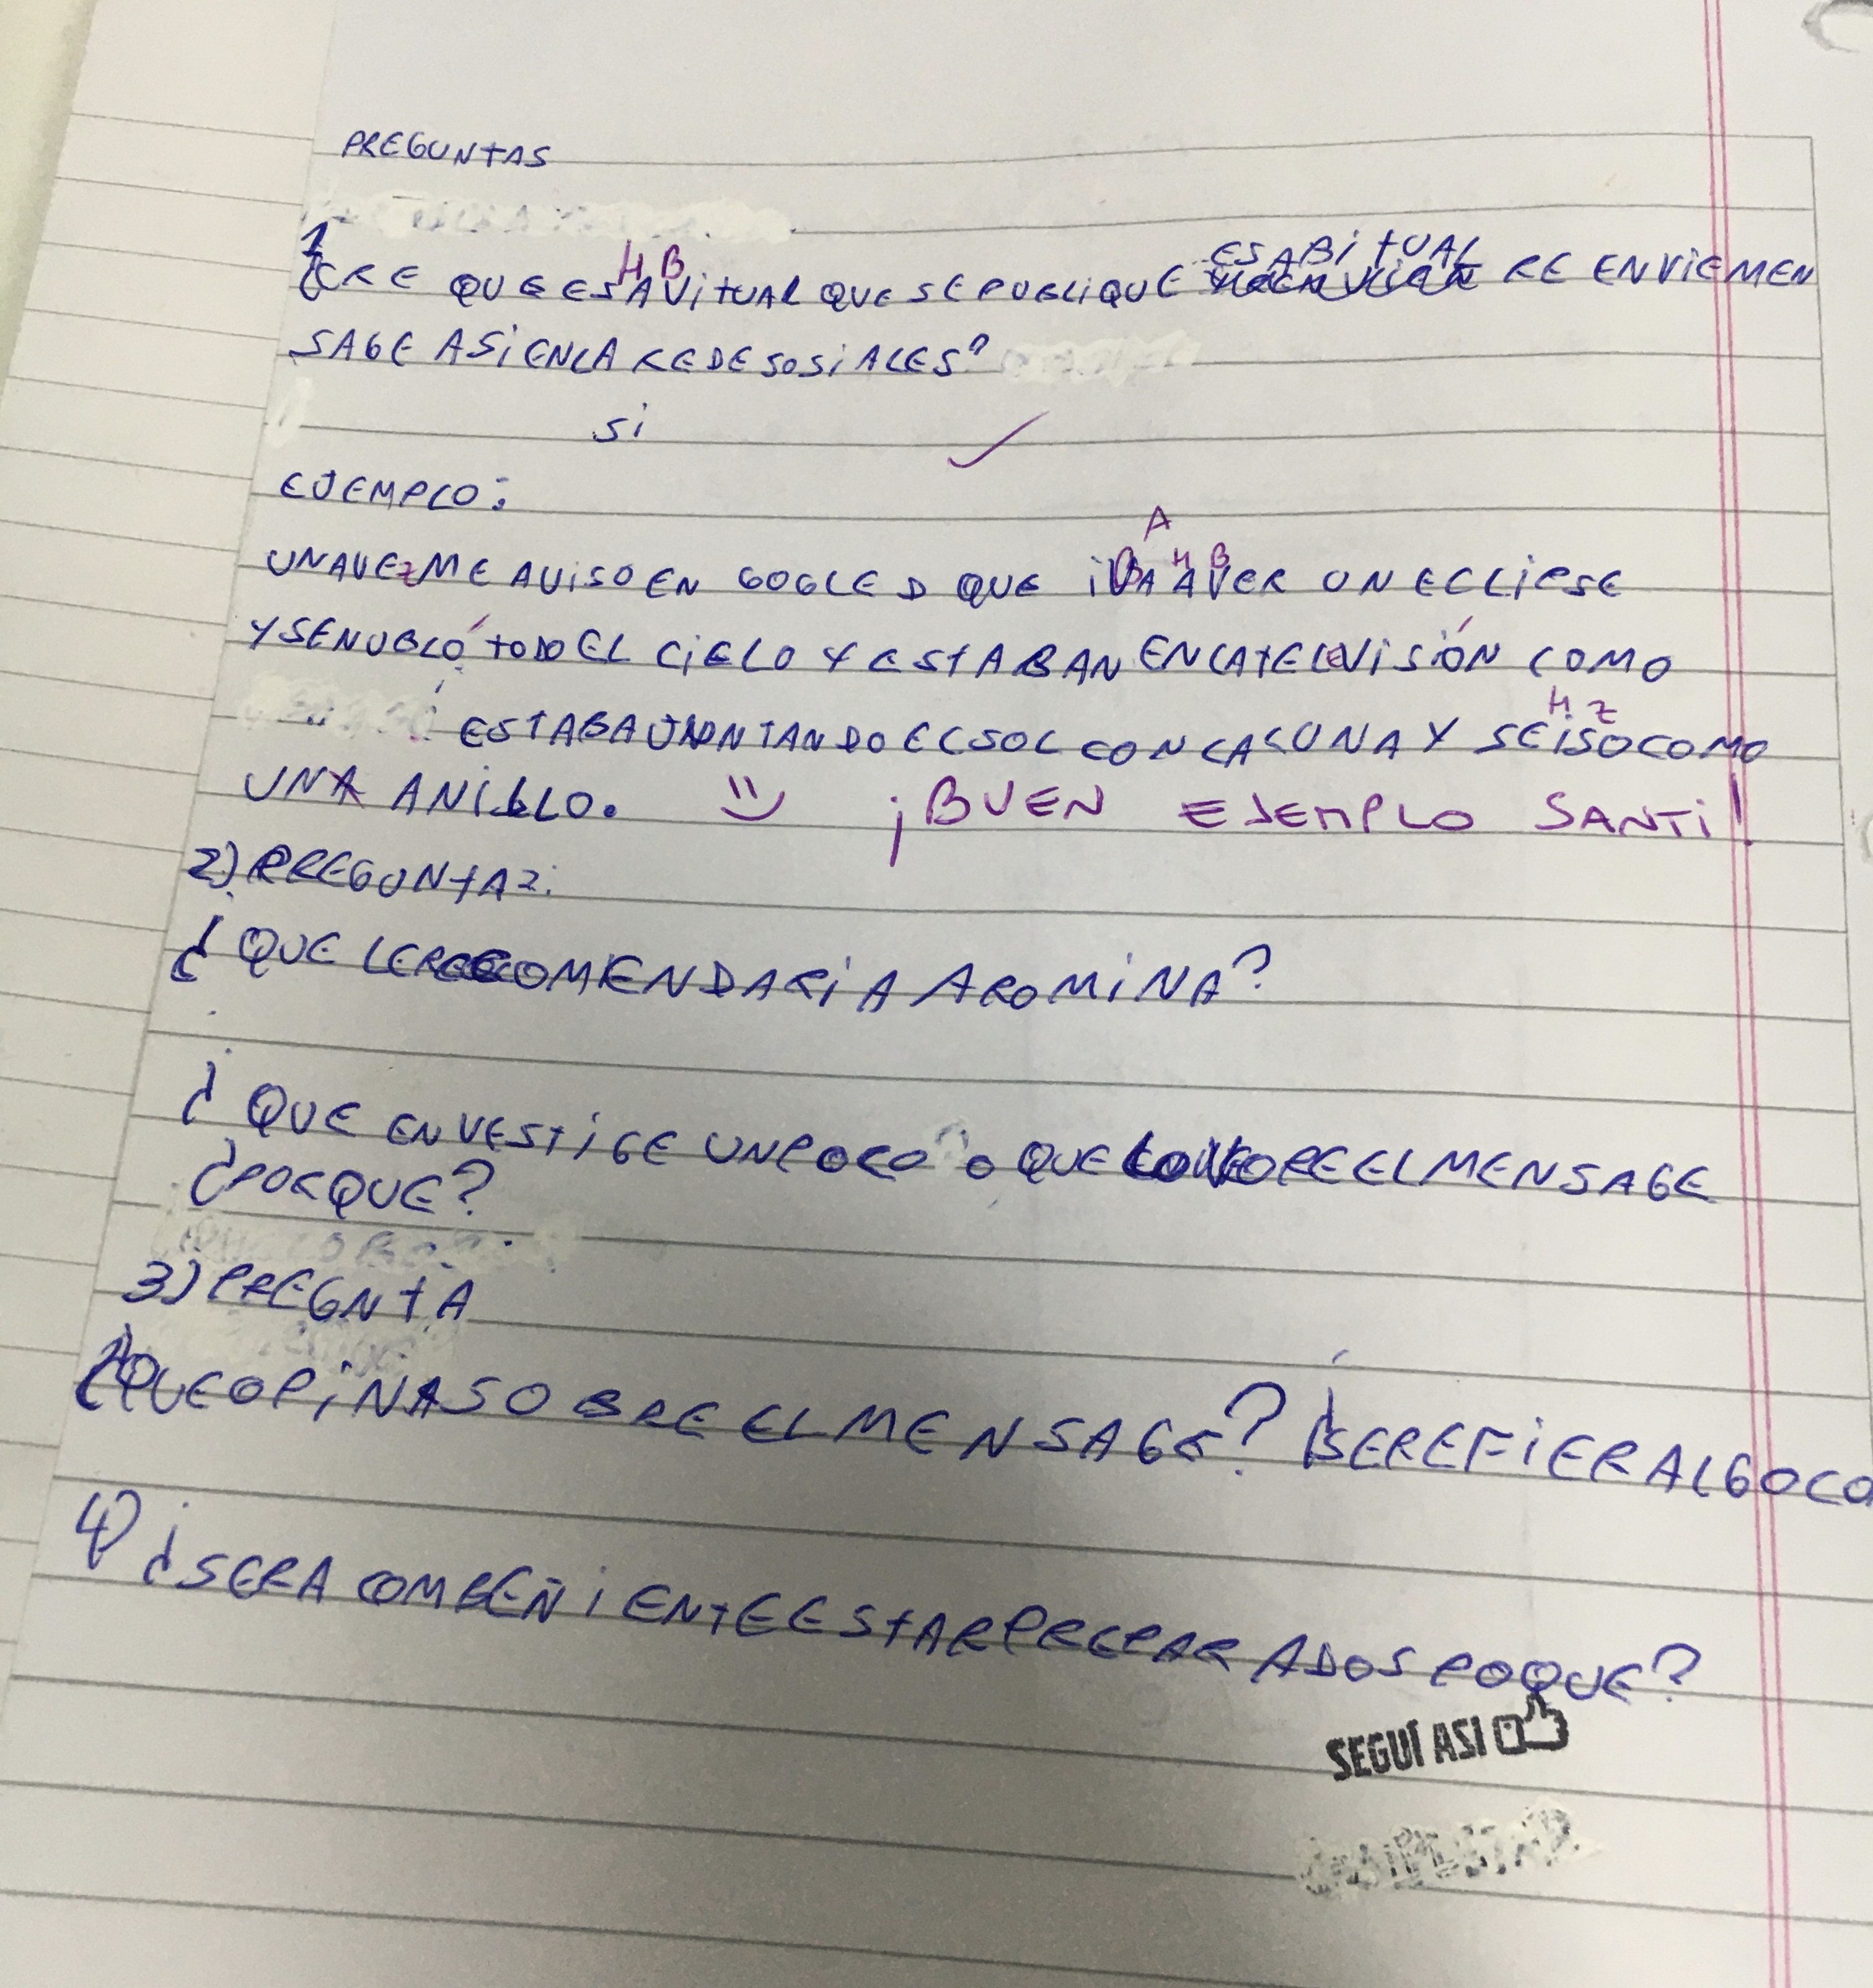 PREGUNTAS
ES ABITUAL
1 CRE QUE ES AVITUAL QUE SE PUBLIQUE RE ENVIE MEN
H B
SAGE ASI EN LA REDE SOSIALES?
SI
EJEMPLO:
A
UNA VEZ ME AVISO EN GOGLE D QUE IVA AVER UN ECLIPSE
B H B
Y SE NUBLÓ TODO EL CIELO Y ESTABAN EN LA TELEVISIÓN COMO
H Z
ESTABA JUNTANDO EL SOL CON LA LUNA Y SE ISO COMO
UNA ANILLO. ¡BUEN EJEMPLO SANTI!
2) PREGUNTA 2:
¿QUE LE RECOMENDARIA A ROMINA?
¿QUE ENVESTIGE UN POCO O QUE EL MENSAGE
¿PORQUE?
3) PREGNTA
¿QUE OPINA SOBRE EL MENSAGE? ¿SE REFIER ALGO CO
4) ¿SERA COMBEÑIENTE ESTAR PREPARADOS POQUE?
SEGUÍ ASI